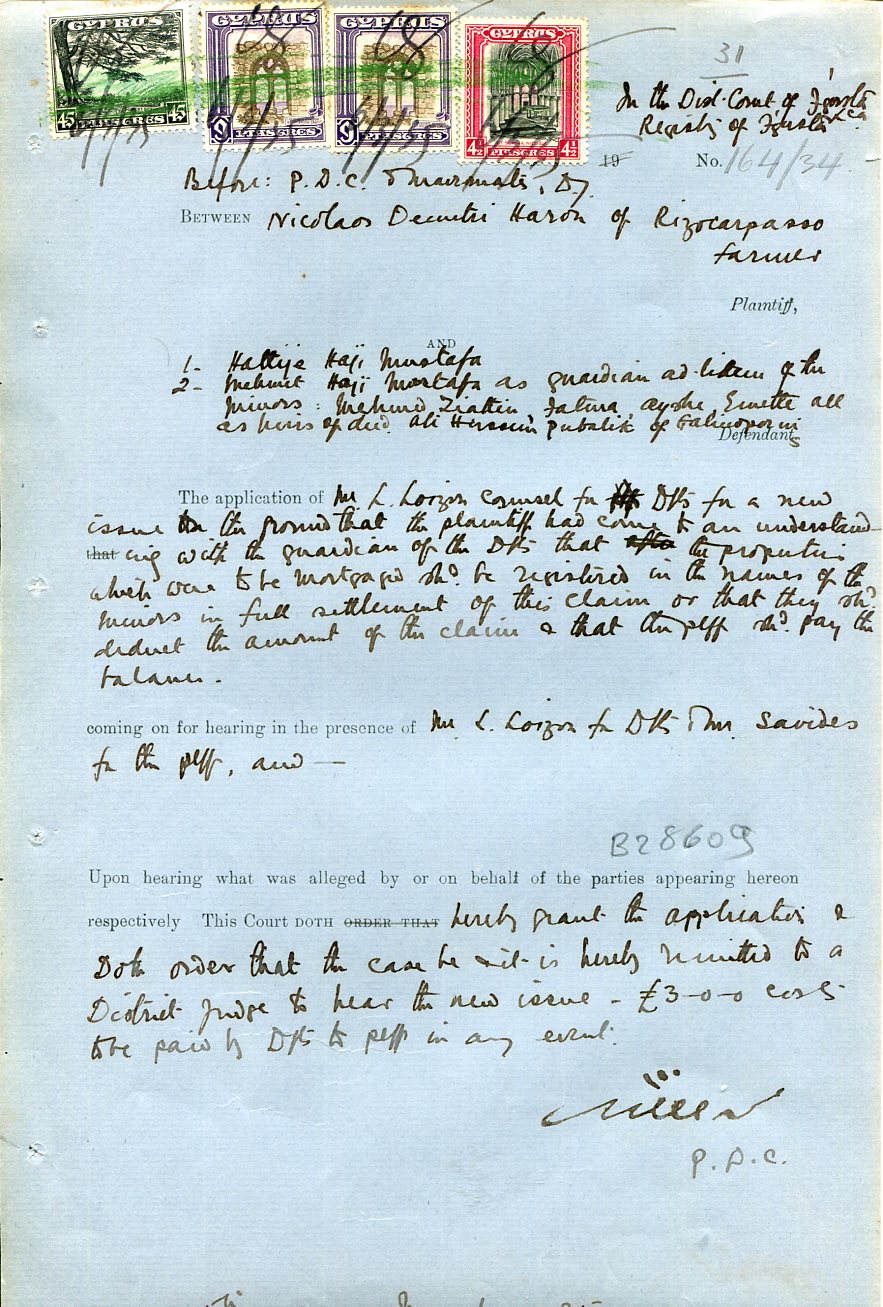 CYPRUS CYPRUS CYPRUS CYPRUS
45 PIASTRES 45 9 PIASTRES 9 PIASTRES 4½ PIASTRES 4½
31
In the Dist. Court of
Registry of
19 No. 164/34
Before: P. D. C. & D.J.
BETWEEN Nicolaos Demitri Haron of Rizocarpasso
farmer
Plaintiff,
AND
1- Hattije Haji Mustafa
2- Mehmet Haji Mustafa as guardian ad-litem of the
minors: Mehmed Ziattin, Fatma, ayshe, Emette all
as heirs of decd. Ali Hussein of Galinoporni
Defendants
The application of Mr. L. Loizou Counsel for Dfts for a new
issue on the ground that the plaintiff had come to an understand
that ing with the guardian of the Dfts that after the properties
which were to be mortgaged shd. be registered in the names of the
minors in full settlement of this claim or that they shd.
deduct the amount of the claim & that the plff shd. pay the
balance.
coming on for hearing in the presence of Mr. L. Loizou for Dfts & Mr. Savides
for the plff, and —
B28609
Upon hearing what was alleged by or on behalf of the parties appearing hereon
respectively This Court DOTH ORDER THAT hereby grant the application &
Doth order that the case be & it is hereby remitted to a
District Judge to hear the new issue - £3-0-0 costs
to be paid by Dfts to plff in any event.
P. D. C.